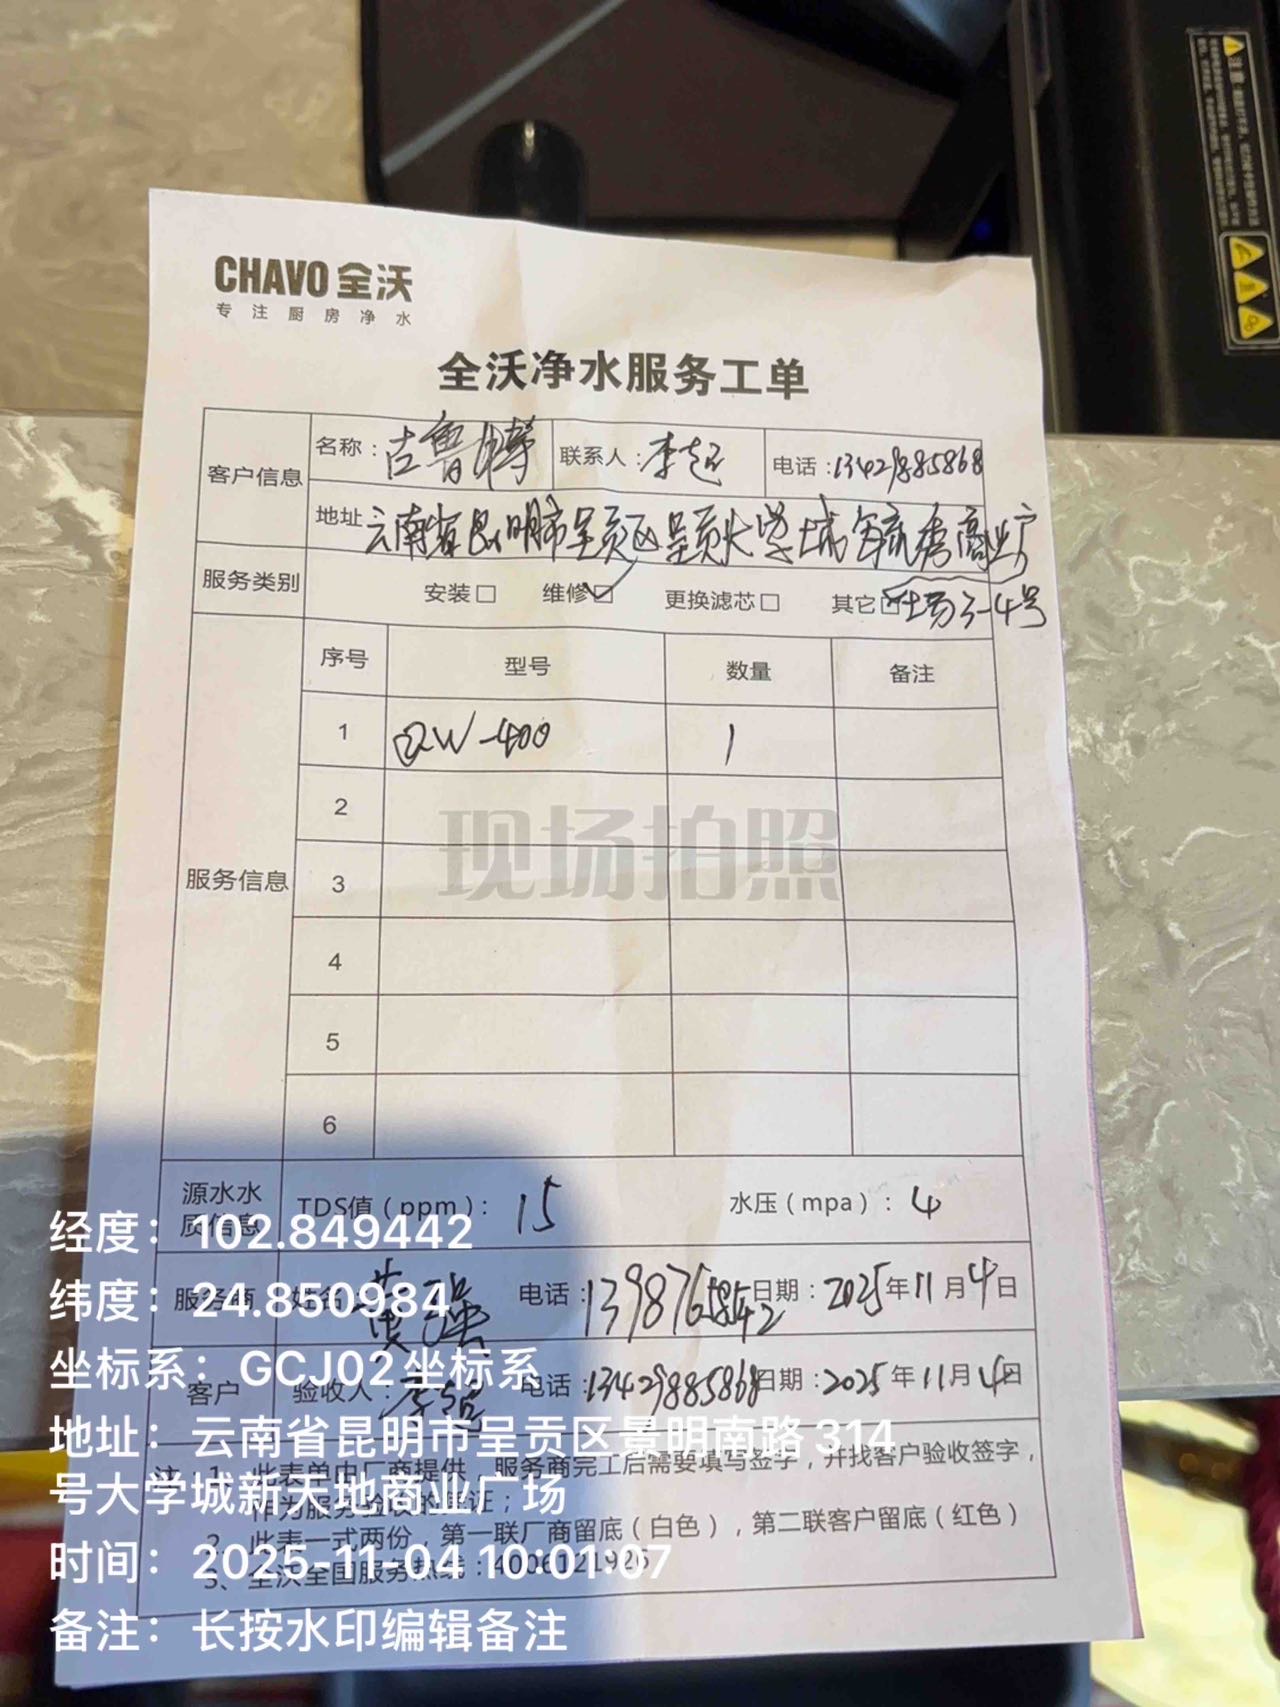 CHAVO 全沃
专注厨房净水
全沃净水服务工单
客户信息
名称：古鲁 联系人：李 电话：13429885868
地址 云南省昆明市呈贡区呈贡大学城 商业广
场3-4号
服务类别 安装□ 维修☑ 更换滤芯□ 其它□
服务信息
序号 型号 数量 备注
1 QW-400 1
2
3
4
5
6
源水水质信息 TDS值（ppm）：15 水压（mpa）：4
服务商 姓名：黄强 电话：13987615842 日期：2025年11月4日
客户 验收人：李 电话：13429885868 日期：2025年11月4日
注：1、此表单由厂商提供，服务商完工后需要填写签字，并找客户验收签字，
作为服务验收的凭证；
2、此表一式两份，第一联厂商留底（白色），第二联客户留底（红色）
3、全沃全国服务热线：4006121926
现场拍照
经度：102.849442
纬度：24.850984
坐标系：GCJ02坐标系
地址：云南省昆明市呈贡区景明南路314
号大学城新天地商业广场
时间：2025-11-04 10:01:07
备注：长按水印编辑备注
注意